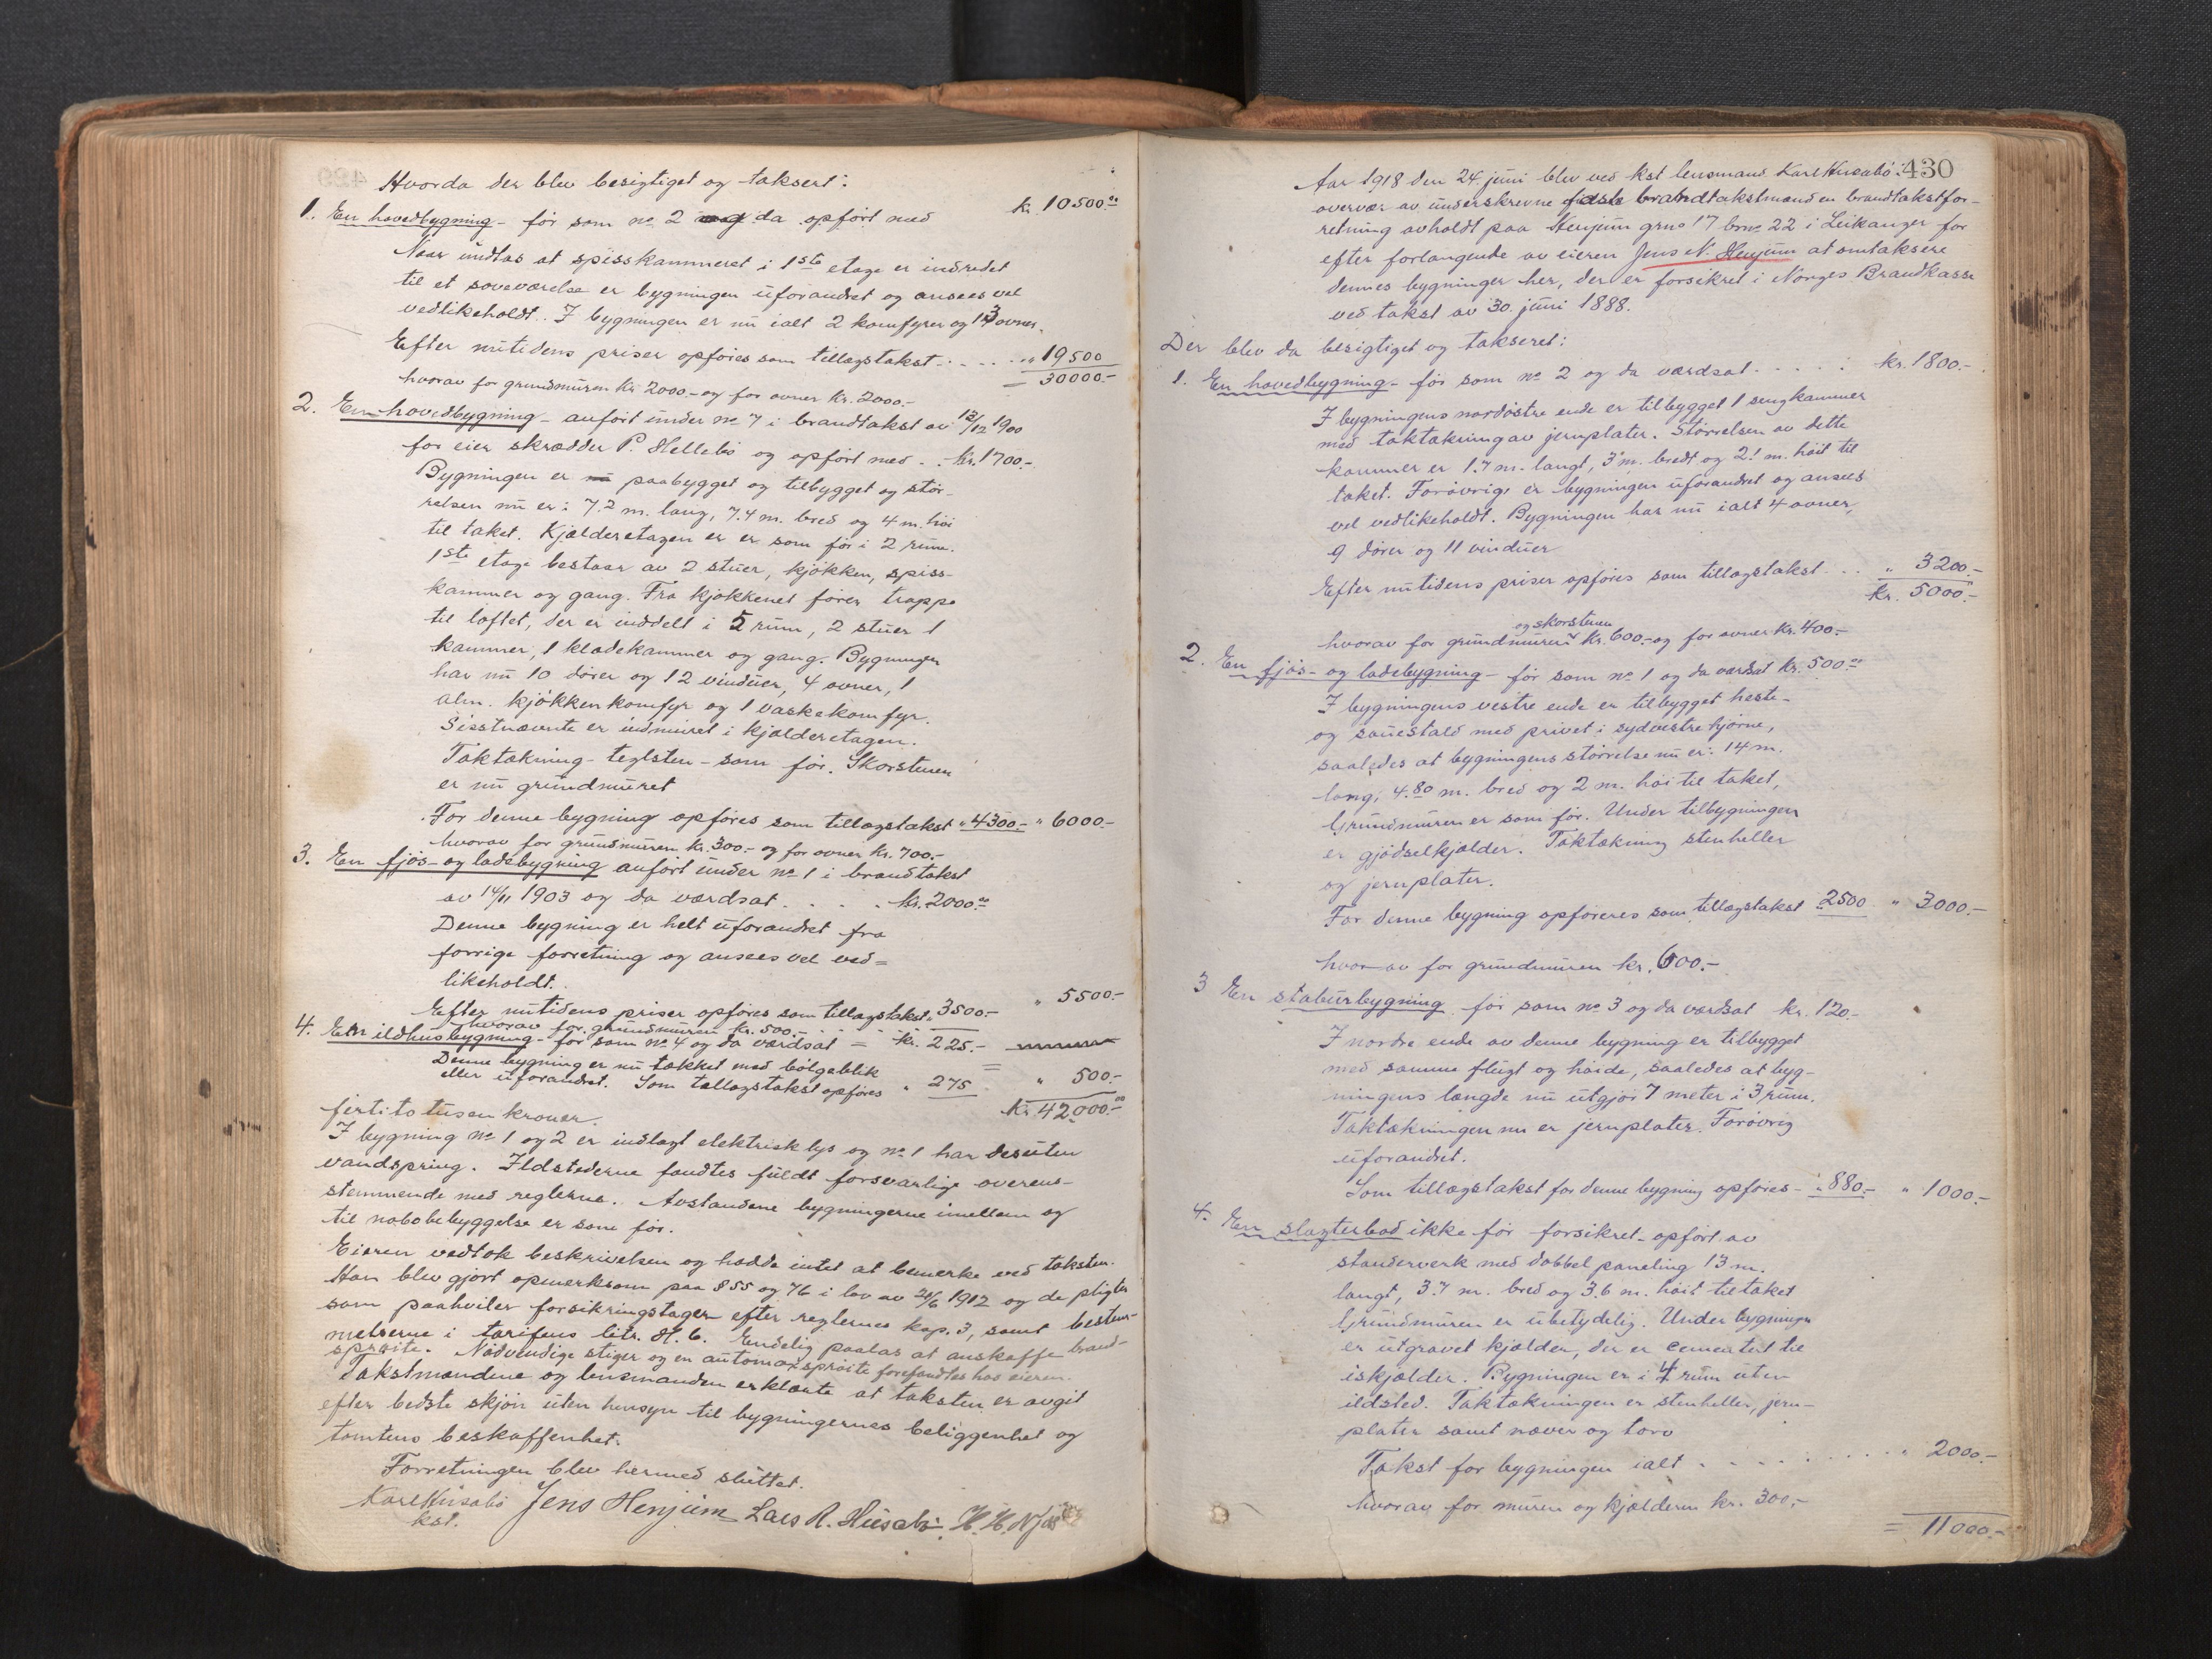 Hvorda der blev besigtiget og taksert:
1. En hovedbygning - før som no 2 og da opført med kr. 10500.00
Naar undtas at spisskammeret i 1ste etage er indredet
til et soveværelse er bygningen uforandret og ansees vel
vedlikeholdt. I bygningen er nu ialt 2 komfyrer og 13 ovner.
Efter nutidens priser opføres som tillægstakst . . . . " 19500
= 30000.-
hvorav for grundmuren kr. 2000.- og for ovner kr. 2000.-
2. En hovedbygning - anført under no 7 i brandtakst av 13/12 1900
for eier skrædder P. Hellebø og opført med . . kr. 1700.-
Bygningen er paabygget og tilbygget og stør-
relsen nu er: 7.2 m. lang, 7.4 m. bred og 4 m. høi
til taket. Kjælderetagen er er som før i 2 rum.
1ste etage bestaar av 2 stuer, kjøkken, spiss-
kammer og gang. Fra kjøkkenet fører trappe
til loftet, der er inddelt i 5 rum, 2 stuer 1
kammer, 1 klædekammer og gang. Bygningen
har nu 10 dører og 12 vinduer, 4 ovner, 1
alm. kjøkkenkomfyr og 1 vaskekomfyr.
Sisstnævnte er indmuret i kjælderetagen.
Taktækning - teglsten - som før. Skorstenen
er nu grundmuret
For denne bygning opføres som tillægstakst " 4300.- " 6000.-
hvorav for grundmuren kr. 300.- og for ovner kr. 700.-
3. En fjøs- og ladebygning anført under no 1 i brandtakst
av 14/11 1903 og da værdsat . . . . kr. 2000.00
Denne bygning er helt uforandret fra
forrige forretning og ansees vel ved=
likeholdt.
Efter nutidens priser opføres som tillægstakst " 3500.- " 5500.-
hvorav for grundmuren kr. 500.-
4. En ildhusbygning - før som no 4 og da værdsat = kr. 225.-
Denne bygning er nu tækket med bølgeblik
eller uforandret. Som tillægstakst opføres " 275 " 500.-
firtito tusen kroner. kr. 42000.-00
I bygning no 1 og 2 er indlagt elektrisk lys og no 1 har desuten
vandspring. Ildstederne fandtes fuldt forsvarlige overens-
stemmende med reglerne. Avstandene bygningerne imellem og
til nabobebyggelse er som før.
Eieren vedtok beskrivelsen og hadde intet at bemerke ved taksten.
Han blev gjort opmerksom paa § 55 og 76 i lov av 21/6 1912 og de pligter
som paahviler forsikringstager efter reglernes kap. 3, samt bestem-
melserne i tarifens litr. H. 6. Endelig paalas at anskaffe brand-
sprøite. Nødvendige stiger og en automaxsprøite forefandtes hos eieren.
Takstmændene og lensmanden erklærte at taksten er avgit
efter bedste skjøn uten hensyn til bygningernes beliggenhet og
tomtens beskaffenhet.
Forretningen blev hermed sluttet.
Karl Husabø Jens Henjum Lars R. Husabø. H. H. Njøs
kst.
430
Aar 1918 den 24. juni blev ved kst lensmand Karl Husabø i
overvær av underskrevne faste brandtakstmænd en brandtakstfor-
retning avholdt paa Henjum grno 17 brno 22 i Leikanger for
efter forlangende av eieren Jens N. Henjum at omtaksere
dennes bygninger her, der er forsikret i Norges Brandkasse
ved takst av 30. juni 1888.
Der blev da besigtiget og takseret:
1. En hovedbygning - før som no 2 og da værdsat . . . . : kr. 1800.-
I bygningens nordøstre ende er tilbygget 1 sengkammer
med taktækning av jernplater. Størrelsen av dette
kammer er 1.7 m. langt, 3 m. bredt og 2.1 m. høit til
taket. Forøvrig er bygningen uforandret og ansees
vel vedlikeholdt. Bygningen har nu ialt 4 ovner,
9 dører og 11 vinduer
Efter nutidens priser opføres som tillægstakst . . . " 3200.-
kr. 5000.-
og skorstenen
hvorav for grundmuren kr. 600.- og for ovner kr. 400.-
2. En fjøs- og ladebygning - før som no 1 og da værdsat kr. 500.00
I bygningens vestre ende er tilbygget heste-
og sauestald med privet i sydvestre hjørne,
saaledes at bygningens størrelse nu er: 14 m.
lang, 4.80 m. bred og 2 m. høi til taket,
Grundmuren er som før. Under tilbygningen
er gjødselkjælder. Taktækning stenheller
og jernplater.
For denne bygning opføreres som tillægstakst 2500 " 3000.-
hvorav for grundmuren kr. 600.-
3 En stabursbygning før som no 3 og da værdsat kr. 120.-
I nordre ende av denne bygning er tilbygget
med samme flugt og høide, saaledes at byg-
ningens længde nu utgjør 7 meter i 3 rum.
Taktækningen nu er jernplater. Forøvrig
uforandret.
Som tillægstakst for denne bygning opføres - " 880.- " 1000.-
4. En slagterbod ikke før forsikret - opført av
standerverk med dobbel paneling 13 m.
langt, 3.7 m. bred og 3.6 m. høit til taket
Grundmuren er ubetydelig. Under bygningen
er utgravet kjælder, der er cementert til
iskjælder. Bygningen er i 4 rum uten
ildsted. Taktækningen er stenheller, jern-
plater samt næver og torv
Takst for bygningen ialt . . . . . . . . " 2000.-
hvorav for muren og kjælderen kr. 300.-
= 11000.-